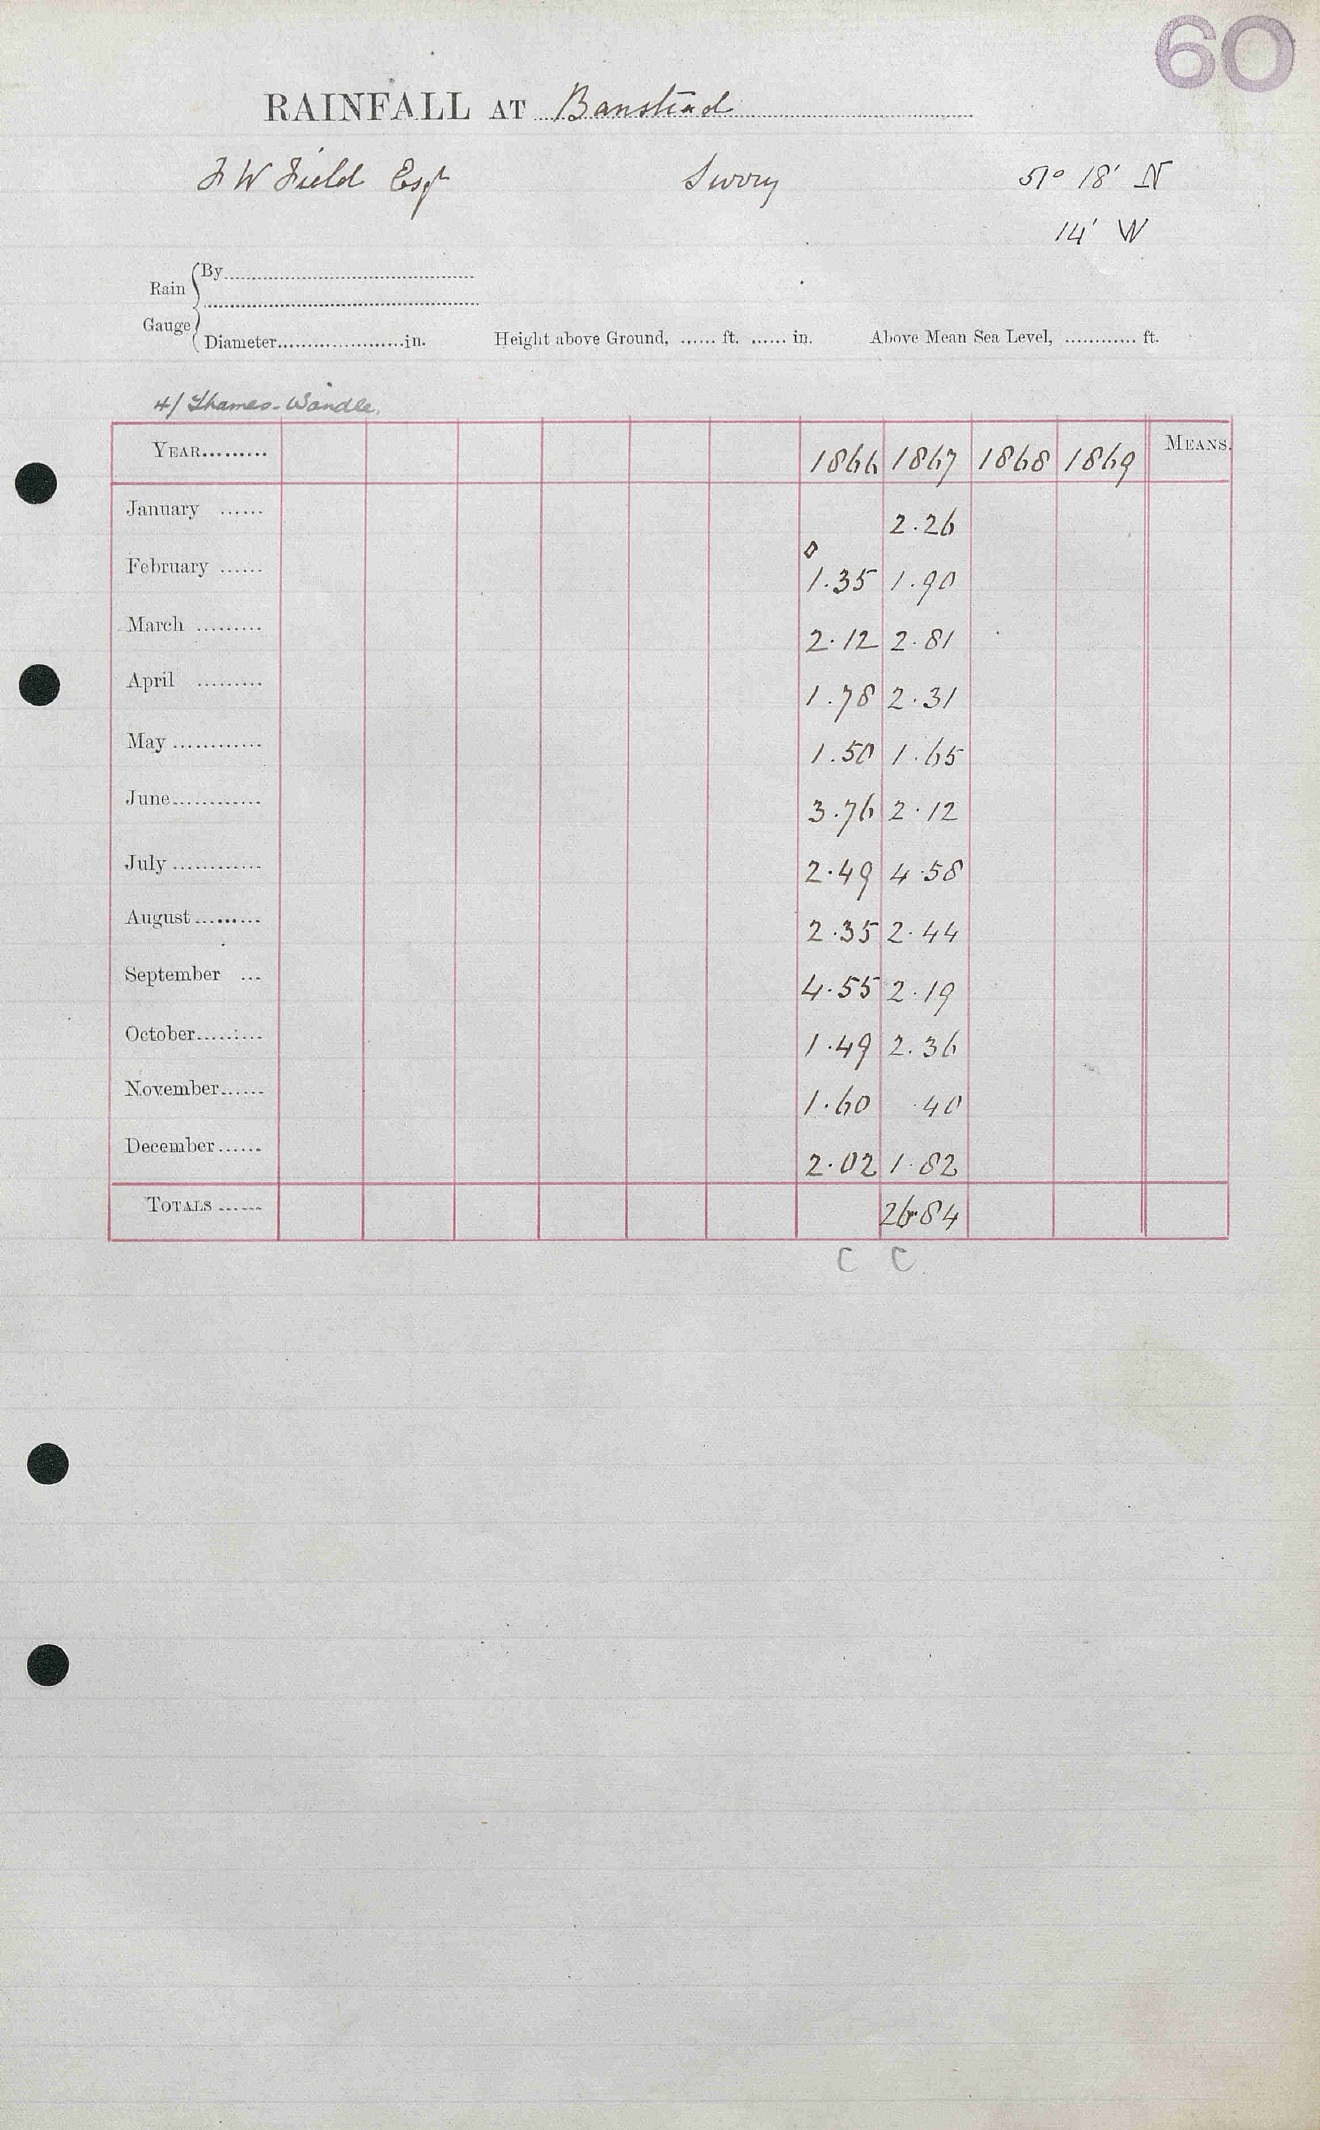 60
RAINFALL AT Banstead
F W Field Esqr Surrey 51° 18' N
14' W
Rain Gauge { By
Diameter in. Height above Ground, ft. in. Above Mean Sea Level, ft.
4/ Thames-Wandle.
YEAR 1866 1867 1868 1869 MEANS.
January 2.26
February 1.35 1.90
March 2.12 2.81
April 1.78 2.31
May 1.50 1.65
June 3.76 2.12
July 2.49 4.58
August 2.35 2.44
September 4.55 2.19
October 1.49 2.36
November 1.60 .40
December 2.02 1.82
TOTALS 26.84
C C